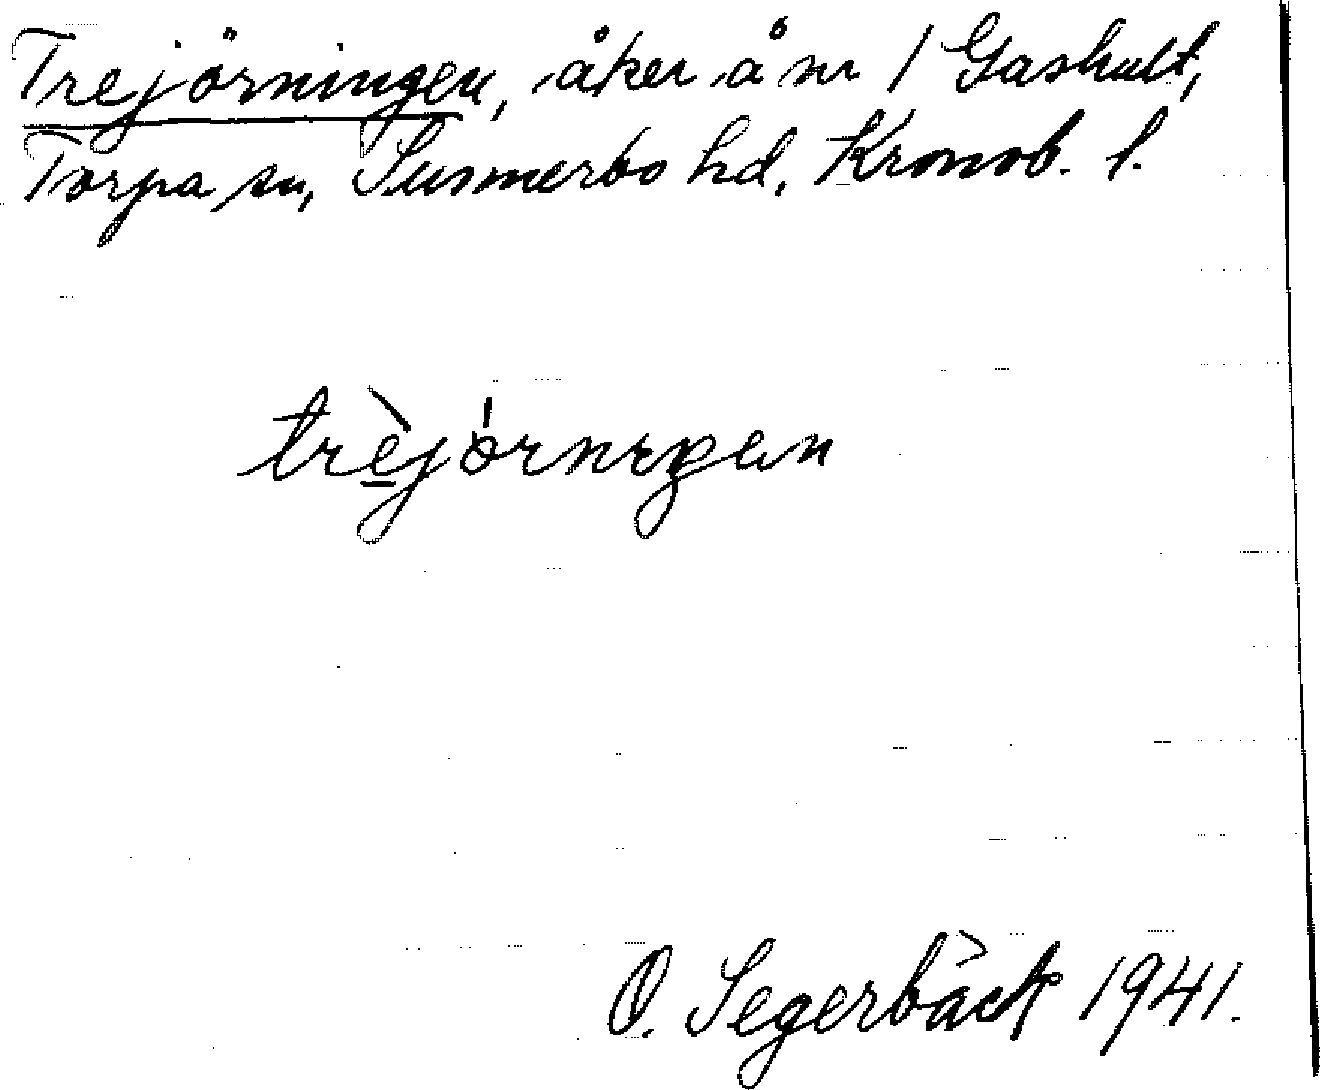 Trejörningen, åker å nr 1 Gashult,
Torpa sn, Sunnerbo hd, Kronob. l.
trèjórnıŋen
O. Segerbäck 1941.